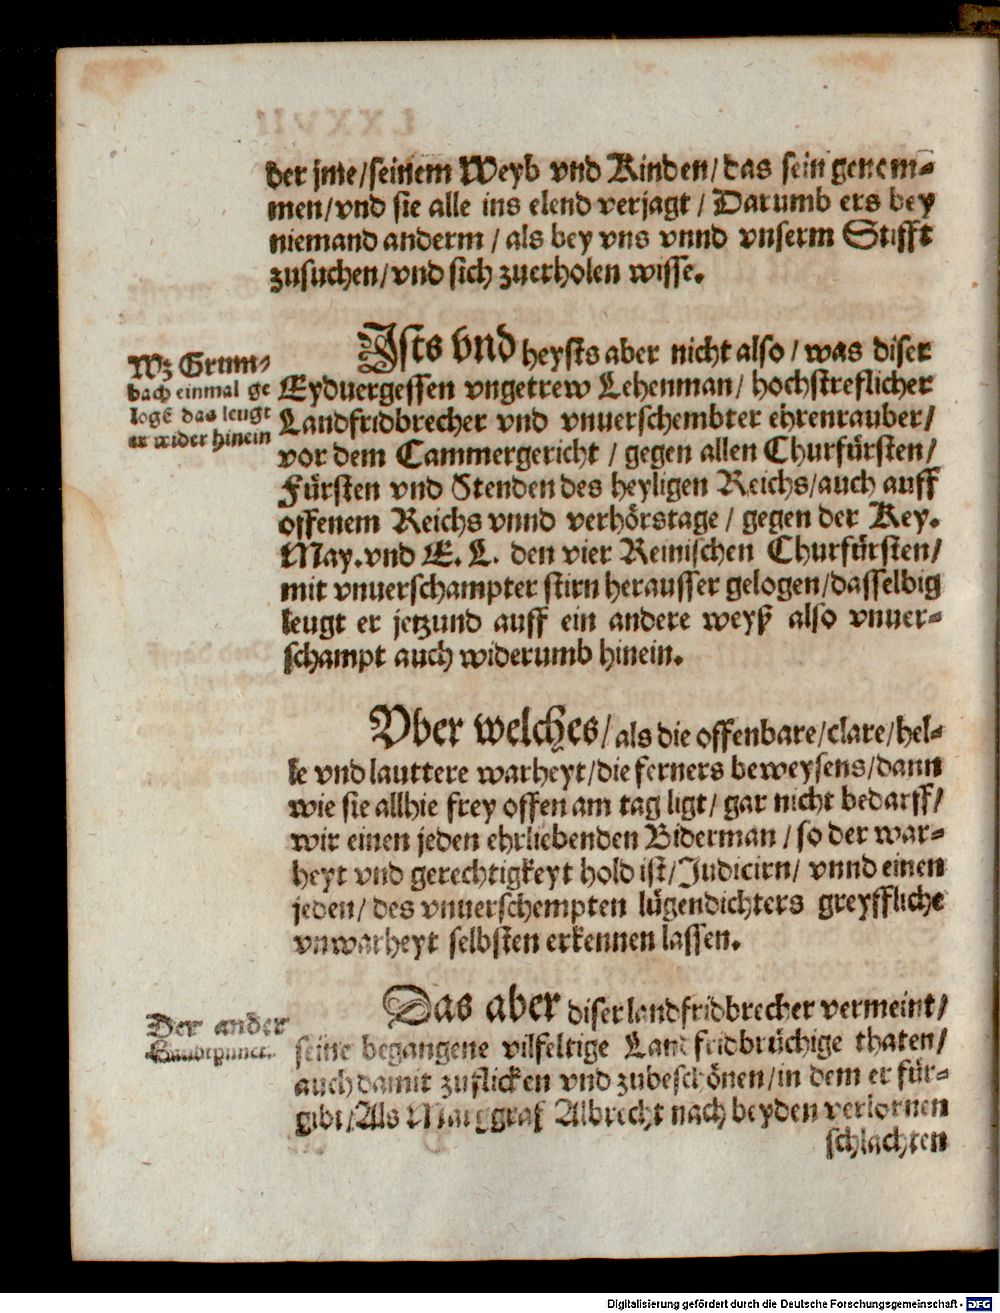 der jme/seinem Weyb vnd Kinden/das sein genom-
men/vnd sie alle ins elend verjagt / Darumb ers bey
niemand anderm / als bey vns vnnd vnserm Stifft
zusuchen/vnd sich zuerholen wisse.
Wz Grum-
bach einmal ge
logē das leugt
er wider hinein
Ists vnd heysts aber nicht also / was diser
Eyduergessen vngetrew Lehenman/ hochstreflicher
Landfridbrecher vnd vnuerschembter ehrenrauber/
vor dem Cammergericht / gegen allen Churfürsten/
Fürsten vnd Stenden des heyligen Reichs/auch auff
offenem Reichs vnnd verhörstage / gegen der Key.
May.vnd E. L. den vier Reinischen Churfürsten/
mit vnuerschampter stirn herausser gelogen/dasselbig
leugt er jetzund auff ein andere weyß also vnuer-
schampt auch widerumb hinein.
Vber welches/ als die offenbare/clare/hel-
le vnd lauttere warheyt/die ferners beweysens/dann
wie sie allhie frey offen am tag ligt/ gar nicht bedarff/
wir einen jeden ehrliebenden Biderman / so der war-
heyt vnd gerechtigkeyt hold ist/Judicirn/ vnnd einen
jeden/ des vnuerschempten lügendichters greyffliche
vnwarheyt selbsten erkennen lassen.
Der ander
Haubtpunct.
Das aber diser landfridbrecher vermeint/
seine begangene vilfeltige Landfridbrüchige thaten/
auch damit zuflicken vnd zubeschönen/in dem er für-
gibt/Als Marggraf Albrecht nach beyden verlornen
schlachten
Digitalisierung gefördert durch die Deutsche Forschungsgemeinschaft - DFG